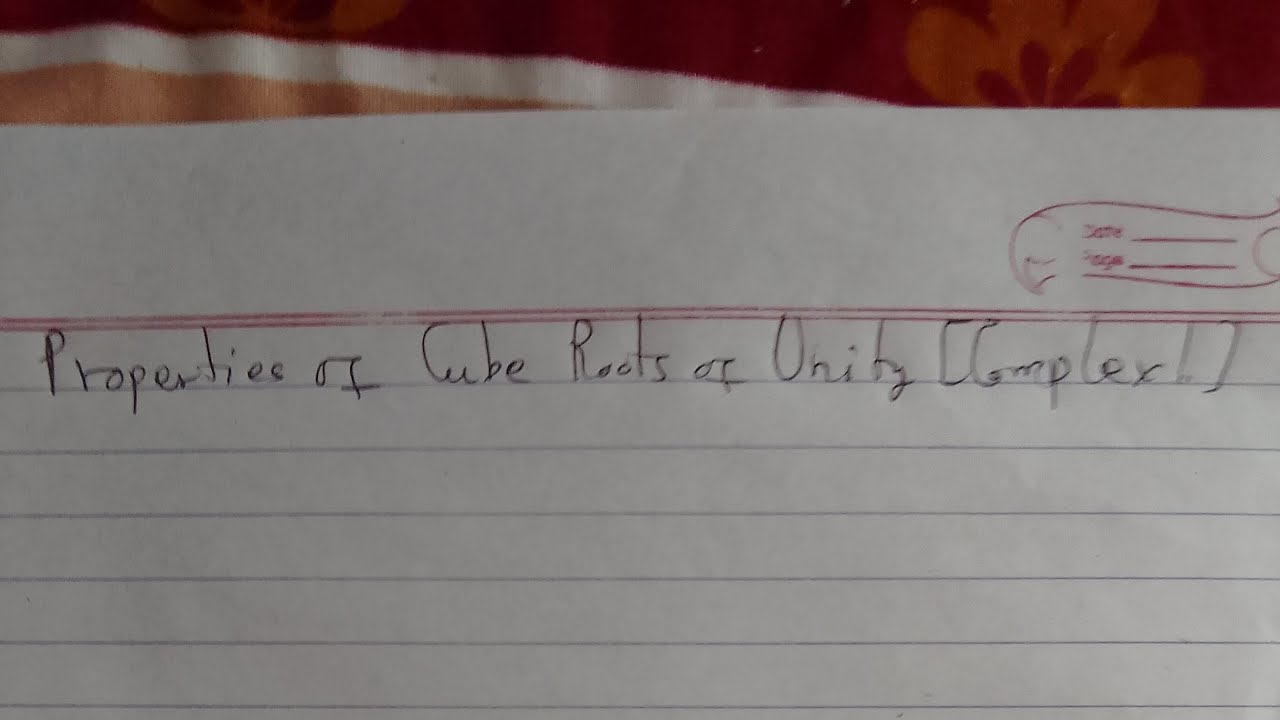 Date
Page
Properties of Cube Roots of Unity [Complex!]